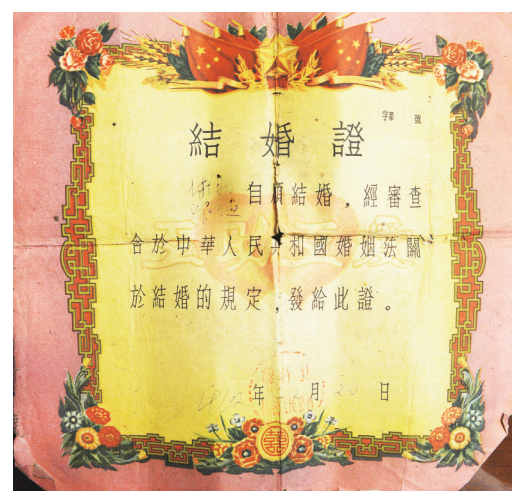 字第 號
結婚證
自願結婚，經審查
合於中華人民共和國婚姻法關
於結婚的規定，發給此證。
年 月 日